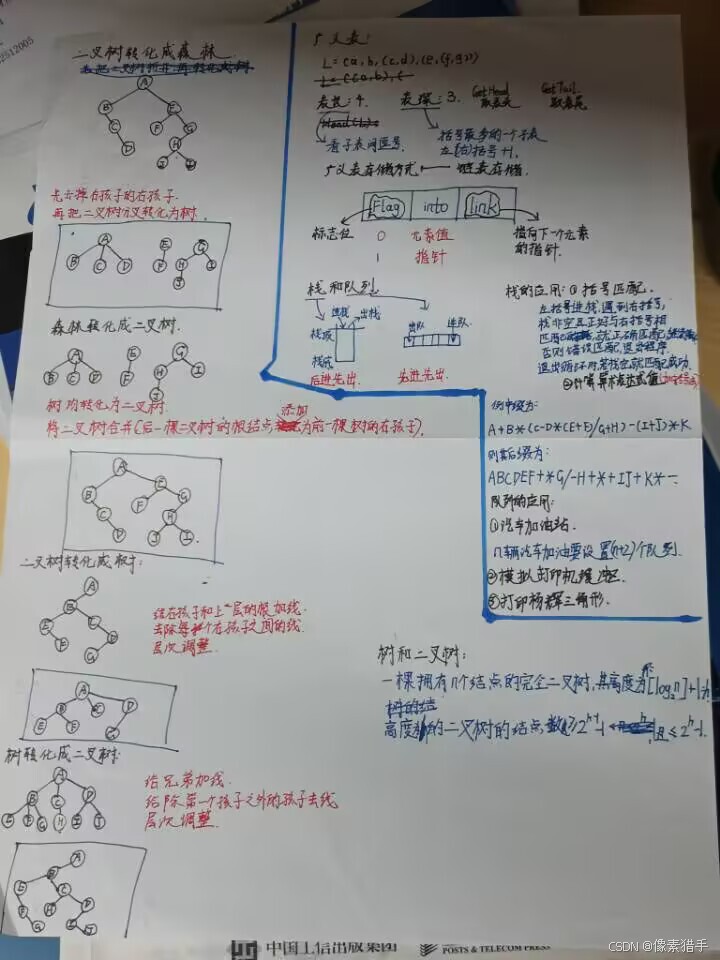 2512005
二叉树转化成森林
A
B E
C F G
D H
I J
先去掉右孩子的右孩子.
再把二叉树分叉转化为树.
A E G
B C D F H I
J
森林转化成二叉树.
A E G
B C D F H I
J
树均转化为二叉树.
添加
将二叉树合并(后一棵二叉树的根结点为前一棵树的右孩子).
A
B E
C F G
D H
J I
二叉树转化成树:
A
B
E C
F D
G
给右孩子和上一层的根加线.
去除每个右孩子之间的线
层次调整.
A
B C D
E F G
树转化成二叉树:
A
B C D
E F G H I J
给兄弟加线.
给除第一个孩子之外的孩子去线
层次调整.
A
B
E C
F H D
G I J
广义表:
L=(a,b,(c,d),(e,(f,g)))
表长:4. 表深:3. GetHead GetTail
取表头 取表尾
看子表间逗号. 括号最多的一个子表
左(右)括号+1.
广义表存储方式 链表存储.
Flag into link
标志位 0 元素值 指向下一个元素
1 指针 的指针.
栈和队列
进栈 出栈 出队 进队
栈顶
栈底
后进先出. 先进先出.
栈的应用:①括号匹配.
左括号进栈,遇到右括号,
栈非空且正好与右括号相
否则错误匹配,退出程序.
退出循环时若栈空就匹配成功
②计算算术表达式值
例中缀为:
A+B*(C-D*(E+F)/G+H)-(I+J)*K
则其后缀为:
ABCDEF+*G/-H+*+IJ+K*-.
队列的应用:
①汽车加油站.
几辆汽车加油要设置(n+2)个队列.
②模拟打印机缓冲区.
③打印杨辉三角形.
树和二叉树:
一棵拥有n个结点的完全二叉树,其高度为[log₂n]+1
高度h的二叉树的结点数≥2^h-1 且≤2^h-1.
中国工信出版集团 POSTS & TELECOM PRESS
CSDN @像素猎手